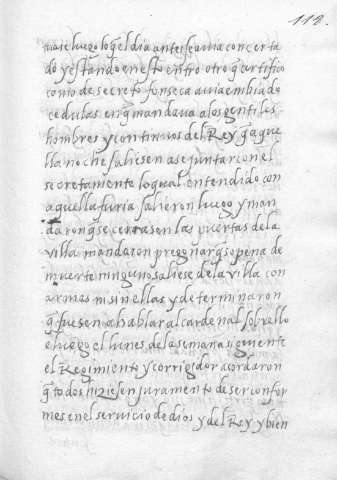 118.
viaje luego lo q̃ el dia antes se avia concerta
do y estando en esto entro otro q̃ artifico
como de secreto fonseca avia embiado
cedulas en q̃ mandava a los gentiles
hombres y continuos del Rey q̃ aque
lla noche saliesen a se juntar con el
secretamente lo qual entendido con
aquella furia salieron luego y man
daron q̃ se cerrasen las puertas de la
villa mandaron pregonar q̃ so pena de
muerte ninguno saliese de la villa con
armas ni sin ellas y determinaron
q̃ fuesen a hablar al cardenal sobre ello
e luego el lunes de la semana siguiente
el Regimiento y corrigidor acordaron
q̃ todos hiziesen juramento de ser confor
mes en el servicio de dios y del Rey y bien